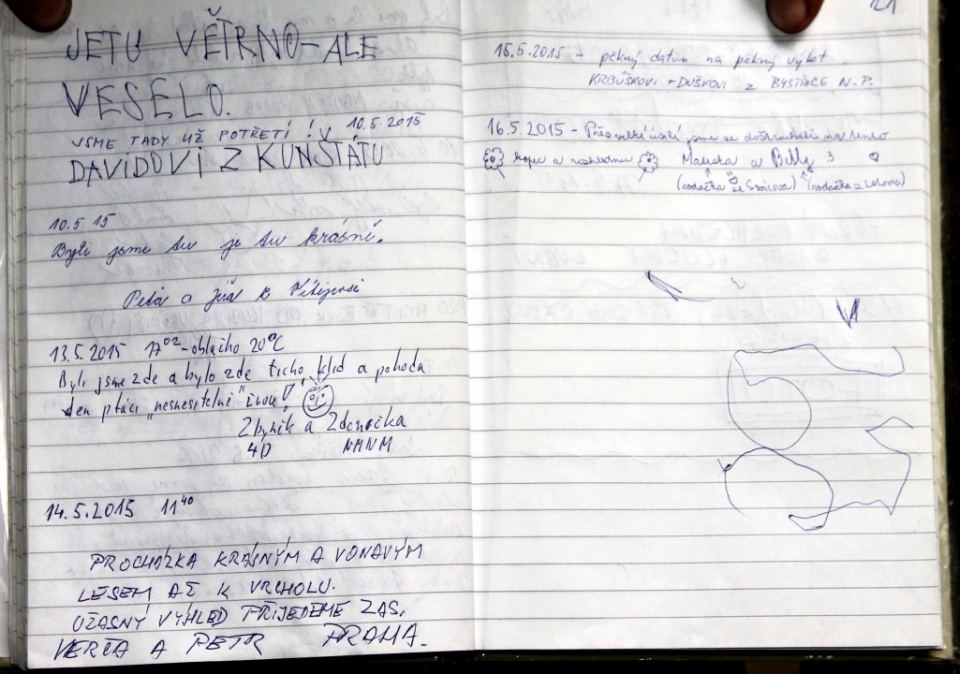 21
JETU VĚTRNO-ALE
VESELO.
JSME TADY UŽ POTŘETÍ! 10.5.2015
DAVIDOVI Z KUNŠTÁTU
10.5.15
Byli jsme tu je tu krásně.
Péťa a
13.5.2015 17⁰² - oblačno 20°C
Byli jsme zde a bylo zde ticho, klid a pohoda
jen ptáci „nesnesitelně" řvou!
Zbyněk a Zdenočka
ŽĎ NMNM
14.5.2015 11⁴⁰
PROCHÁZKA KRÁSNÝM A VONAVÝM
LESEM AŽ K VRCHOLU.
ÚŽASNÝ VÝHLED PŘIJEDEME ZAS.
VERČA A PETR PRAHA.
15.5.2015 - pěkný datum na pěkný výlet
KRBŮŠKOVI + DUŠKOVI Z BYSTŘICE N.P.
16.5.2015 - jsme se došourali na tento
kopec a rozhlednu Maruška a Betty 3
(rodačka ze ) (rodačka z )